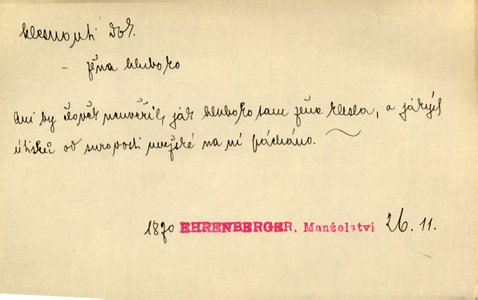 klesnouti Dok.
– žena hluboko
Ani by člověk neuvěřil, jak hluboko tam žena klesla, a jakých
útisků od surovosti mužské na ní pácháno.
1870 EHRENBERGER, Manželství 26. 11.